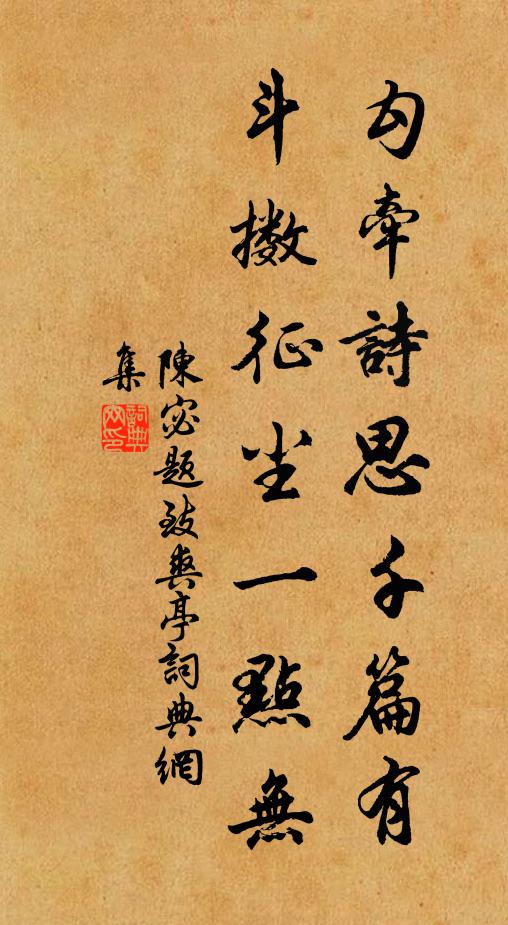 勾牽詩思千篇有
斗擻征尘一點無
陳宓題致爽亭詞典網
集
詞典
網印